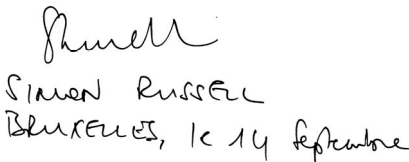 SIMON RUSSELL
BRUXELLES, le 14 Septembre